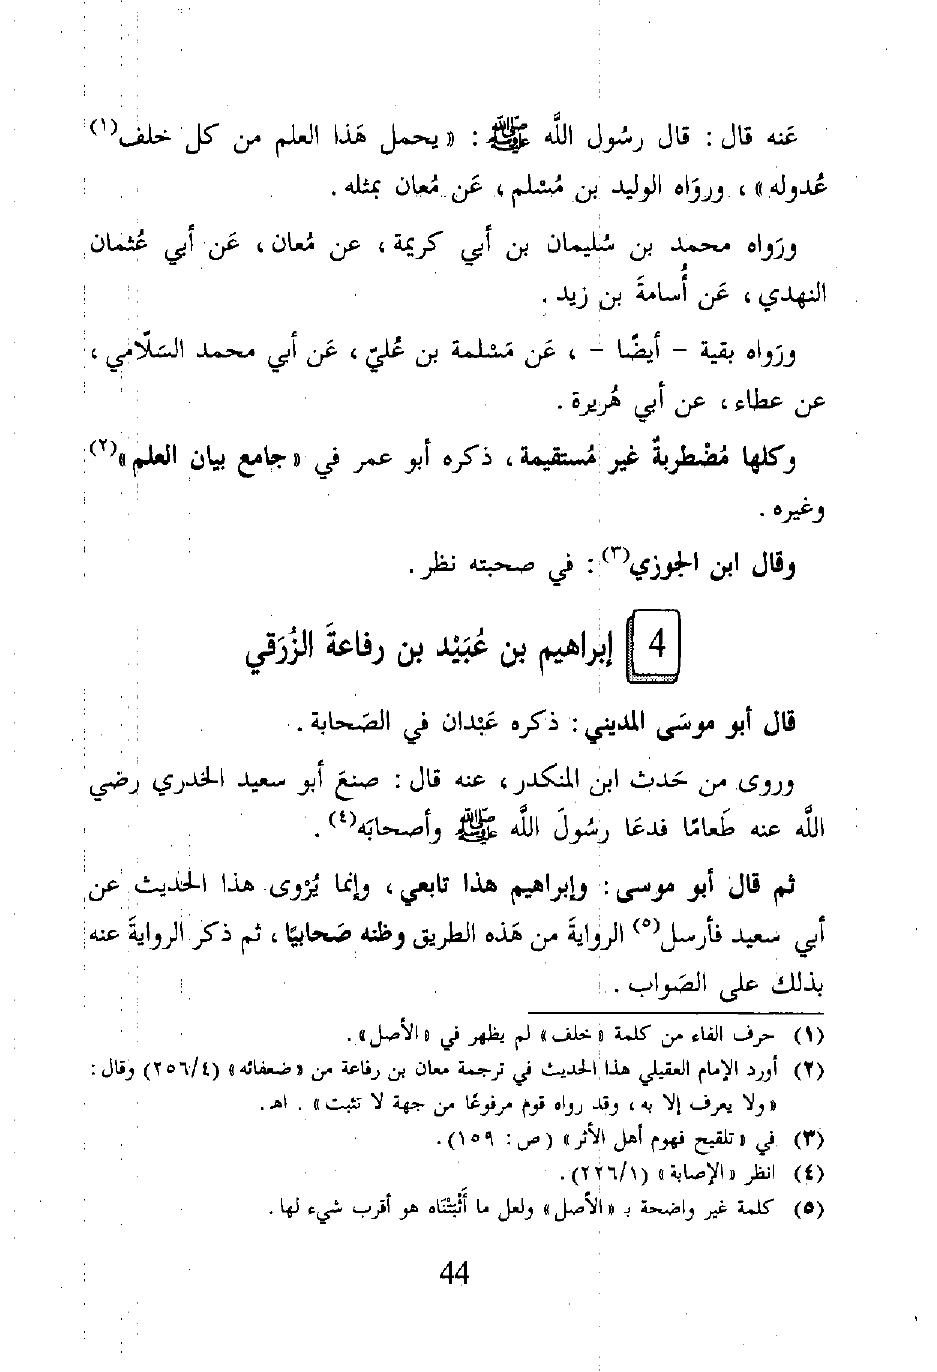 عَنه قال : قال رسُول اللَّه ﷺ : « يحمل هَذا العلم من كل خلف(١)
عُدوله » ، وروَاه الوليد بن مُسْلم ، عَن مُعان بمثله .
وروَاه محمد بن سُليمان بن أبي كريمة ، عن مُعان ، عَن أبي عُثمان
النهدي ، عَن أُسامةَ بن زيد .
وروَاه بقية – أيضًا – ، عَن مَسْلمة بن عُليّ ، عَن أبي محمد السَلّامي ،
عن عطاء ، عن أبي هُريرة .
وكلها مُضْطربةٌ غير مُستقيمة ، ذكره أبو عمر في « جامع بيان العلم »(٢)
وغيره .
وقال ابن الجوزي(٣) : في صحبته نظر .
4 إبراهيم بن عُبَيْد بن رفاعةَ الزُرَقي
قال أبو موسَى المديني : ذكره عَبْدان في الصَحابة .
وروى من حَدث ابن المنكدر ، عنه قال : صنعَ أبو سعيد الخدري رضي
اللَّه عنه طَعامًا فدعَا رسُولَ اللَّه ﷺ وأصحابَه(٤) .
ثم قال أبو موسى : وإبراهيم هذا تابعي ، وإنما يُرْوى هذا الحديث عن
أبي سعيد فأرسل(٥) الروايةَ من هَذه الطريق وظنه صَحابيًا ، ثم ذكر الروايةَ عنه
بذلك على الصَواب .
(١) حرف الفاء من كلمة « خلف » لم يظهر في « الأصل » .
(٢) أورد الإمام العقيلي هذا الحديث في ترجمة معان بن رفاعة من « ضعفائه » (٢٥٦/٤) وقال :
« ولا يعرف إلا به ، وقد رواه قوم مرفوعًا من جهة لا تثبت » . اهـ .
(٣) في « تلقيح فهوم أهل الأثر » ( ص : ١٥٩) .
(٤) انظر « الإصابة » (٢٢٦/١) .
(٥) كلمة غير واضحة بـ « الأصل » ولعل ما أَثْبَتْنَاه هو أقرب شيء لها .
44